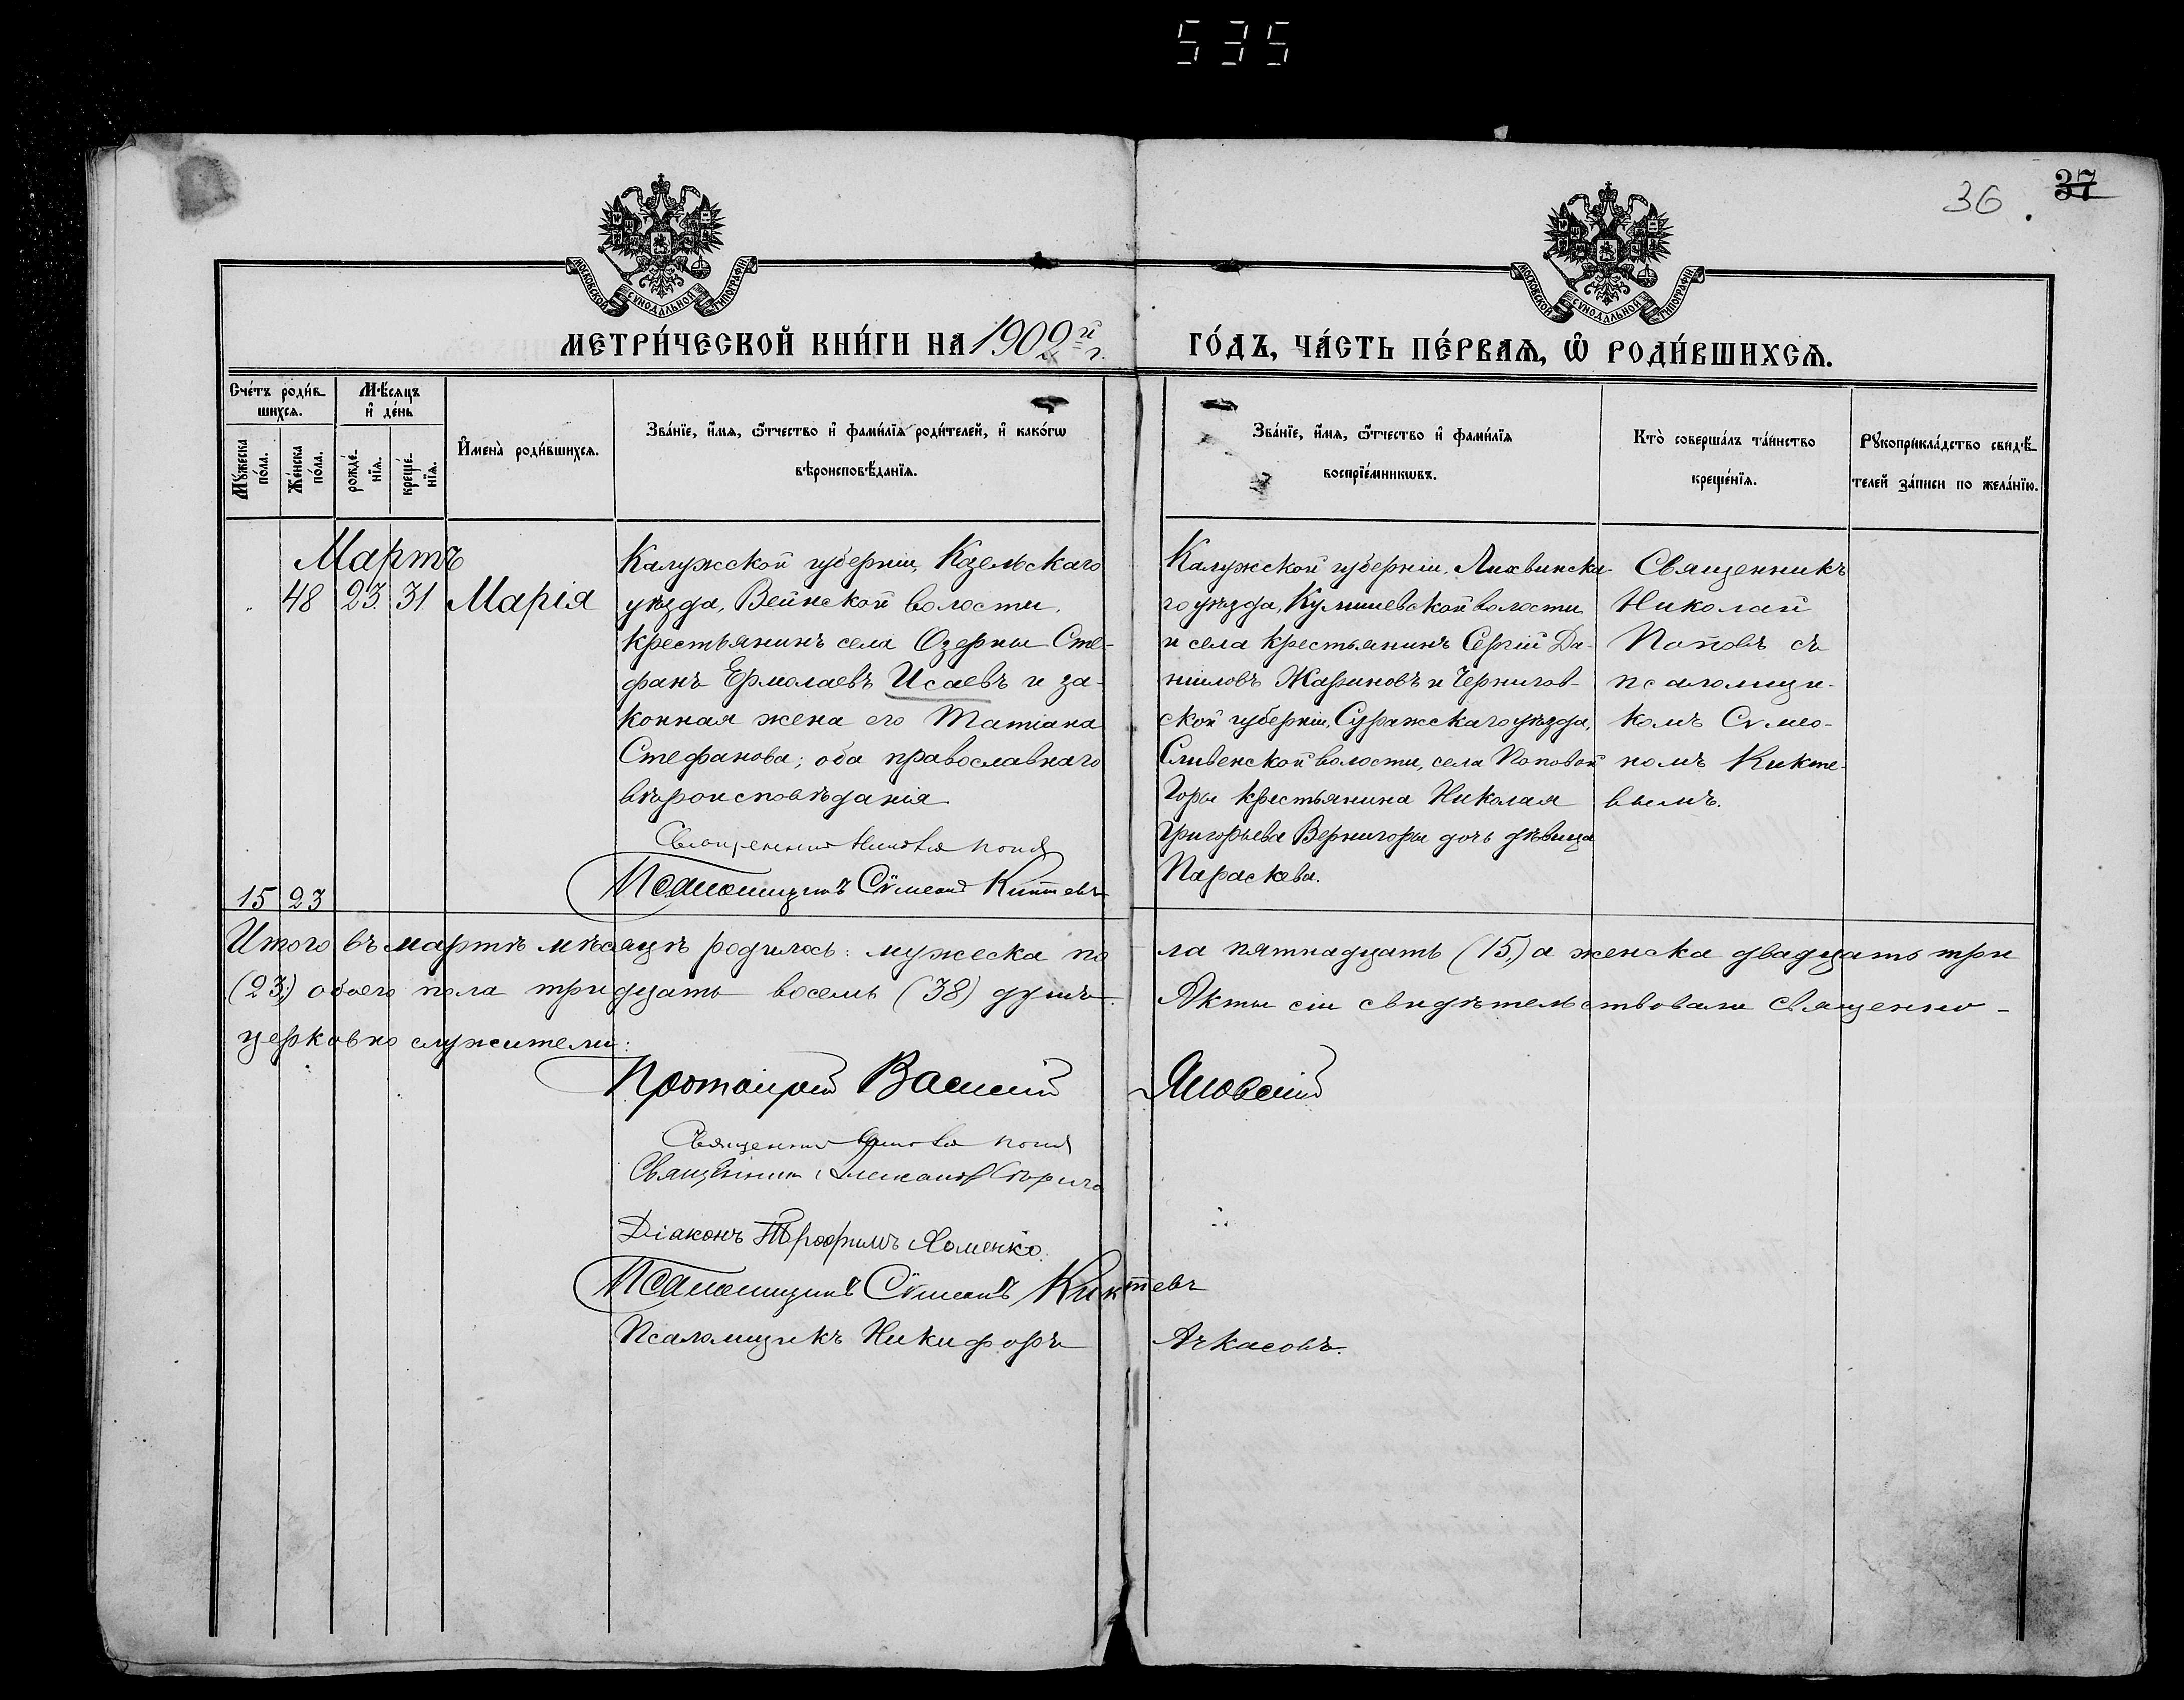 535
36
37
МОСКОВСКОЙ СУНОДАЛЬНОЙ ТИПОГРАФІИ
МОСКОВСКОЙ СУНОДАЛЬНОЙ ТИПОГРАФІИ
МЕТРИ́ЧЕСКОЙ КНИ́ГИ НА 1902й г.
ГО́ДЪ, ЧА́СТЬ ПЕ́РВАѦ, Ѡ҆ РОДИ́ВШИХСѦ.
Сче́тъ роди́в-
шихсѧ.
Мꙋ́жеска
по́ла.
Же́нска
по́ла.
Мѣ́сѧцъ
и҆ де́нь
рожде́-
нїѧ.
креще́-
нїѧ.
И҆мена̀ роди́вшихсѧ.
Зва́нїе, и҆́мѧ, ѻ҆́тчество и҆ фами́лїѧ роди́телей, и҆ како́гѡ
вѣроисповѣ́данїѧ.
Зва́нїе, и҆́мѧ, ѻ҆́тчество и҆ фами́лїѧ
воспрїе́мникѡвъ.
Кто̀ соверша́лъ та́инство
креще́нїѧ.
Рꙋкоприкла́дство свидѣ́-
телей за́писи по жела́нїю.
Мартъ
48 23. 31. Марія
Калужской губерніи, Козельскаго
уѣзда, Вейнской волости,
крестьянинъ села Озерны Сте-
фанъ Ермолаевъ Исаевъ и за-
конная жена его Татіана
Стефанова; оба православнаго
вѣроисповѣданія
Священникъ Николай Поповъ
Псаломщикъ Сѵмеонъ Киктевъ
Калужской губерніи, Лихвинска-
го уѣзда, Кулишевской волости
и села крестьянинъ Сергій Да-
ніиловъ Жариновъ и Чернигов-
ской губерніи, Суражскаго уѣзда,
Сливенской волости, села Поповой
Горы крестьянина Николая
Григорьева Вернигоры дочь дѣвица
Параскева.
Священникъ
Николай
Поповъ съ
псаломщи-
комъ Сѵмео-
номъ Кикте-
вымъ.
15 23
Итого въ мартѣ мѣсяцѣ родилось: мужеска по
ла пятнадцать (15,) а женска двадцать три
(23;) обоего пола тридцать восемь (38) душъ.
Акты сіи свидѣтельствовали священно-
церковно служители:
Протоіерей Василій Яновскій
Священникъ Николай Поповъ
Священникъ
Діаконъ Трофимъ Хоменко.
Псаломщикъ Сѵмеонъ Киктевъ
Псаломщикъ Никифоръ Ачкасовъ.